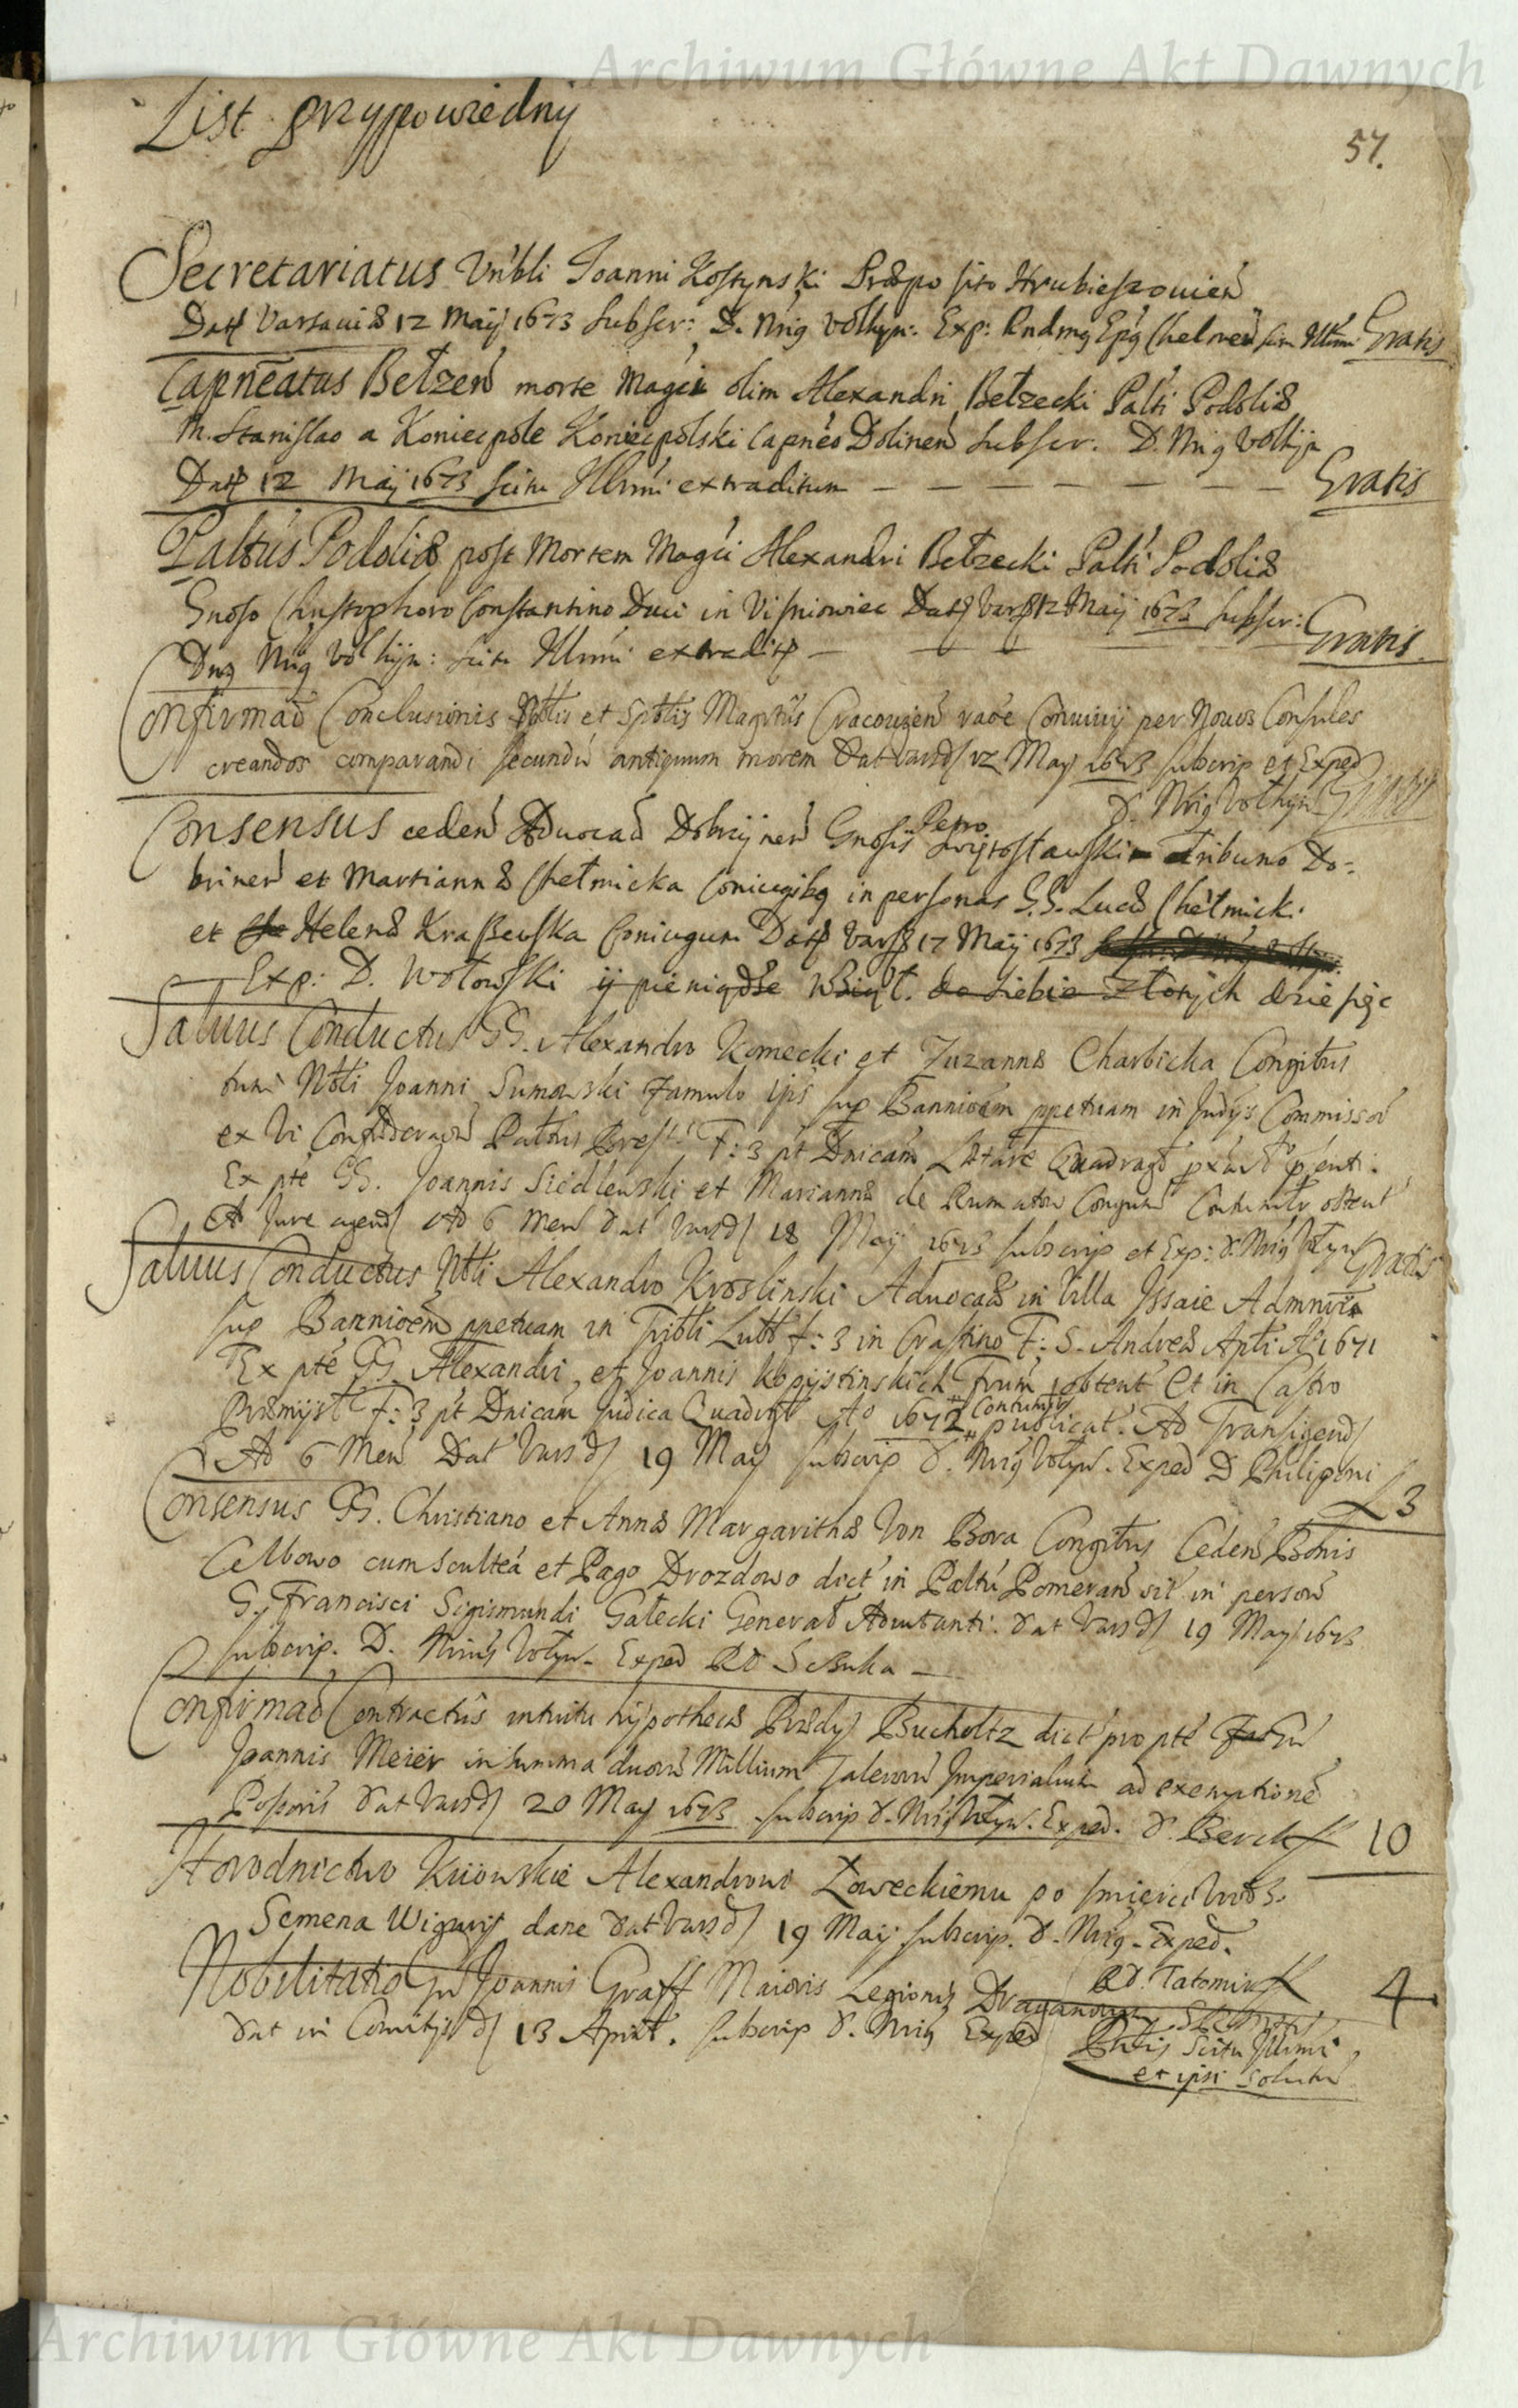 Archiwum Główne Akt Dawnych
List przypowiedny
57.
Secretariatus Vnbli Joanni Kostynski Præposito Hrubieszouien
Dat Varsauiæ 12 Maij 1673 subscr: D. Nrig Volhyn: Exp: Rndmg Epg Chelmen scitu Illmi Gratis
Capneatus Bełzen morte Magci olim Alexandri Bełzecki Palti Podoliæ
M. Stanislao a Koniecpole Koniecpolski Capneo Dolinen subscr. D. Nrig Volhyn
Dat 12 Maij 1673 scitu Illmi extraditum — — — — — — — Gratis
Paltus Podoliæ post Mortem Magci Alexandri Bełzecki Palti Podoliæ
Gnoso Christophoro Constantino Duci in Visniowiec Dat Vars 12 Maij 1673 subscr:
Dng Nrig Volhijn: scitu Illmi extradit — — — — — Gratis.
Confirmao Conclusionis Nblis et Sptlis Magrtus Cracouien raõe Conuiuij per Nouos Consules
creandos comparandi secundu antiquum morem Dat Vars d 12 Maij 1673 subscrip et Exped
D. Nrig Volhyn Gratis
Consensus ceden Aduocao Dobrzynen Gnosis Petro Swiętosławski Tribuno Do-
brinen et Mariannæ Chełmicka Coniugibg in personas G.G. Lucæ Chełmick:
et Helenæ Kraszewska Coniugum Dat Vars 17 Maij 1673
Exp: D. Wołowski ij pieniądze Wziął. do siebie złotych dziesięc
Saluus Conductus GG. Alexandro Komecki et Zuzannæ Charbicka Congibus
tum Nbli Joanni Sumowski Famulo ijs sup Bannioem ppetuam in Judijs Commissor
ex Vi Confæderaon Paltus F: 3 pt Dnicam Lætare Quadrag
Ex pte GG. Joannis Siedlewski et Mariannæ de Rum Congum obtent
Ad Jure agend Ad 6 Men Dat Vars d 18 Maij 1673 subscrip et Exp: D. Nrig Volyn Gratis
Saluus Conductus Nbli Alexandro Kroslinski Aduocao in Villa Issaie
sup Bannioem ppetuam in Tribli Lubl F: 3 in Crastino F: S. Andreæ Apli Ao 1671
Ex pte GG. Alexandri et Joannis Kopystinskich Frum obtent Et in Castro
Præmysl F: 3 pt Dnicam Judica Quadrag Ao 1672 Contumij publicat. Ad Transigend
Ad 6 Men Dat Vars d 19 Maij subscrip D. Nrig Volyn. Exped D Philippini
3
Consensus GG. Christiano et Annæ Margarithæ Von Bora Congibus Ceden Bonis
Celbowo cum Scultea et Pago Drozdowo dict in Paltu Pomeran sit in person
G. Francisci Sigismundi Gałecki Generał Adiutanti. Dat Vars d 19 Maij 1673
subscrip. D. Nrius Volyn. Exped RD —
Confirmao Contractus intuitu hypothecæ Prædij Bucholtz dict pro pte
Joannis Meier in summa duoru Millium Taleroru Imperialium ad exemptione
Possoris Dat Vars d 20 Maij 1673 subscrip D. Nrig Volyn. Exped. D. Berck 10
Horodnictwo Kiiowskie Alexandrowi Łoweckiemu po smierci Vrodz.
Semena dane Dat Vars d 19 Maij subscrip. D. Nrig. Exped.
RD. Tatomir 4
Nobilitatio Gn Joannis Graff Maioris Legionis Draganorum
Dat in Comitijs d 13 Aprił. subscrip D. Nrig Exped
scitu Illmi
et ipsi solutu
Archiwum Główne Akt Dawnych